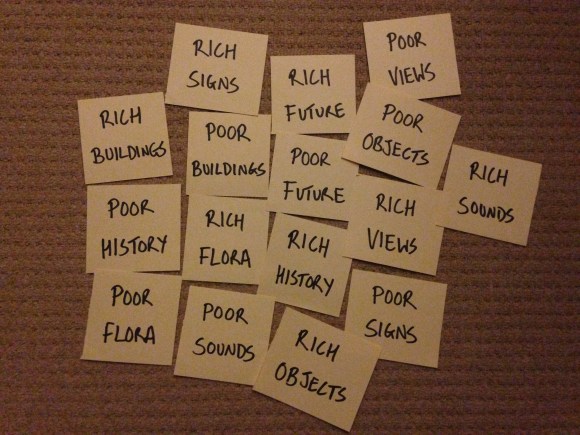 RICH
SIGNS
RICH
FUTURE
POOR
VIEWS
RICH
BUILDINGS
POOR
BUILDINGS
POOR
FUTURE
POOR
OBJECTS
RICH
SOUNDS
POOR
HISTORY
RICH
FLORA
RICH
HISTORY
RICH
VIEWS
POOR
FLORA
POOR
SOUNDS
RICH
OBJECTS
POOR
SIGNS